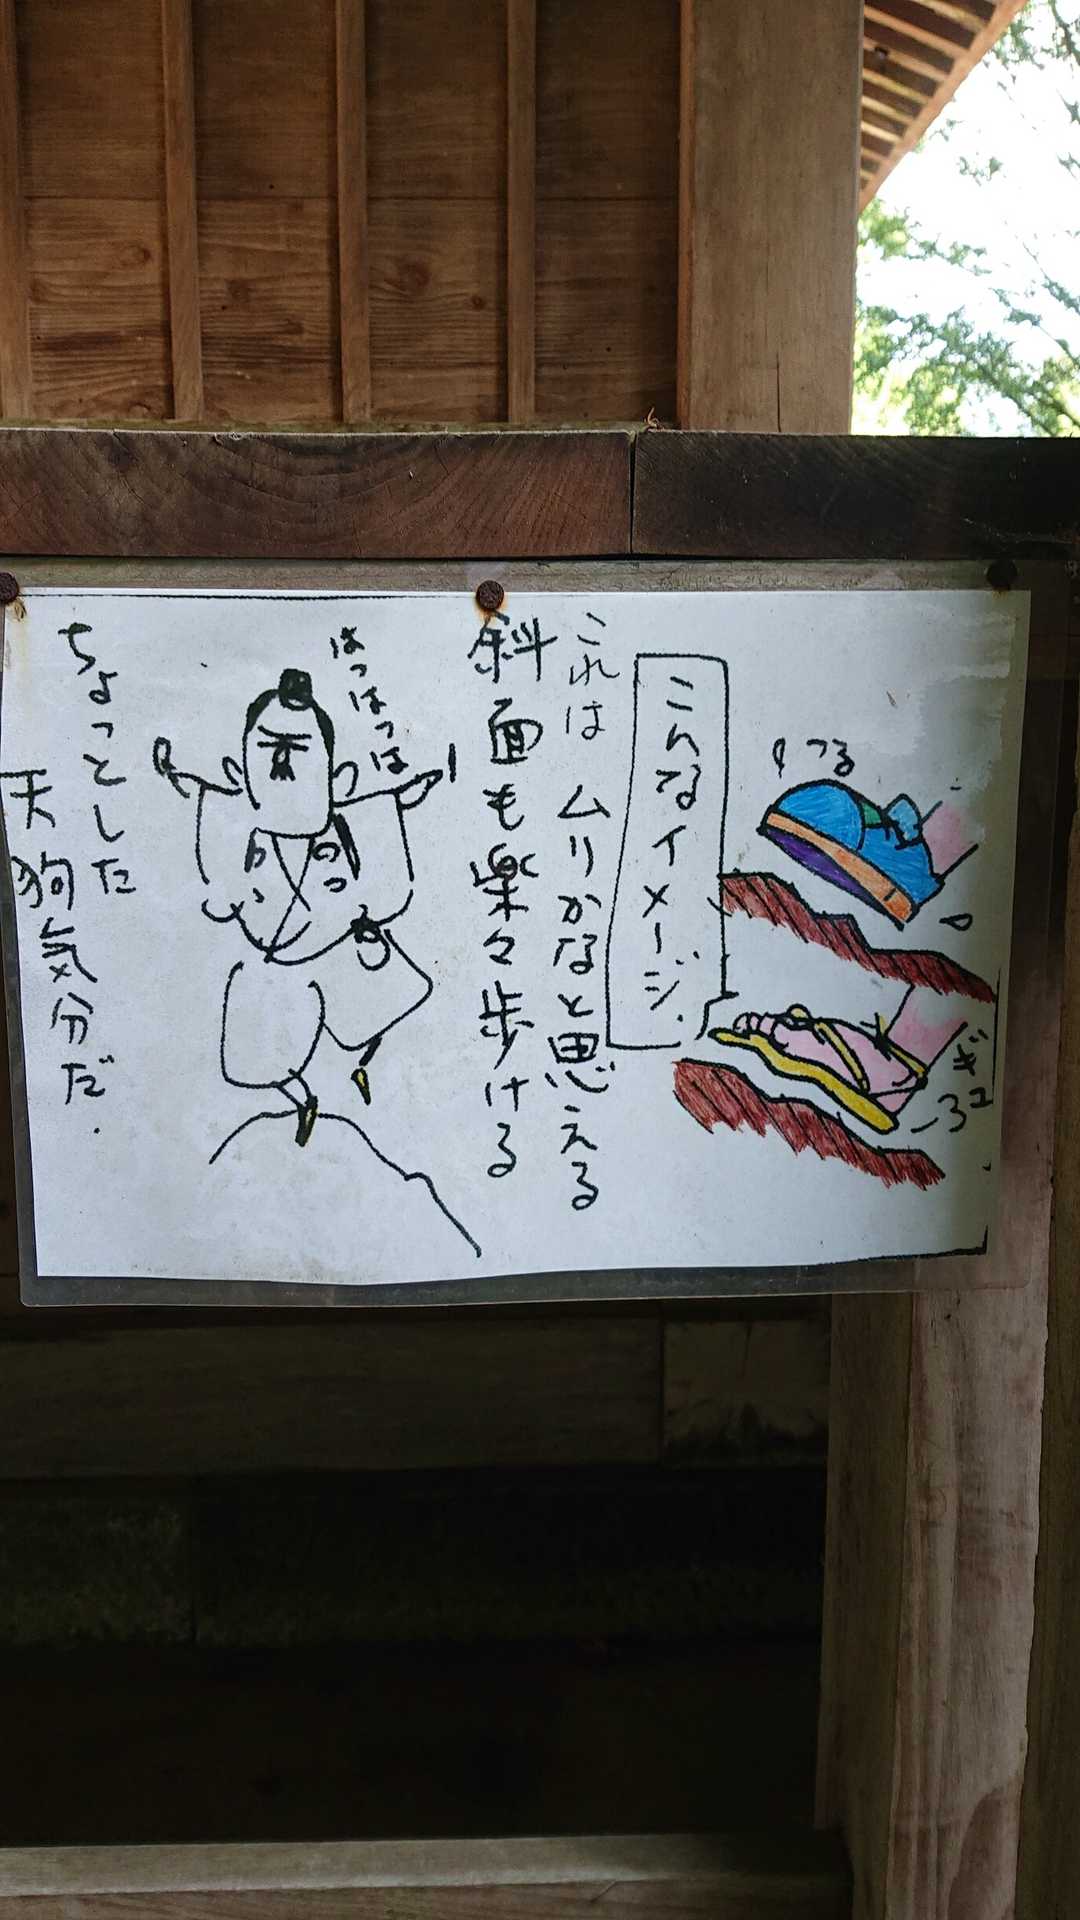 つるっ
ギュ
ーっ
こんなイメージ
これは ムリかなと思える
斜面も楽々歩ける
はっはっは
ちょっとした
天狗気分だ.